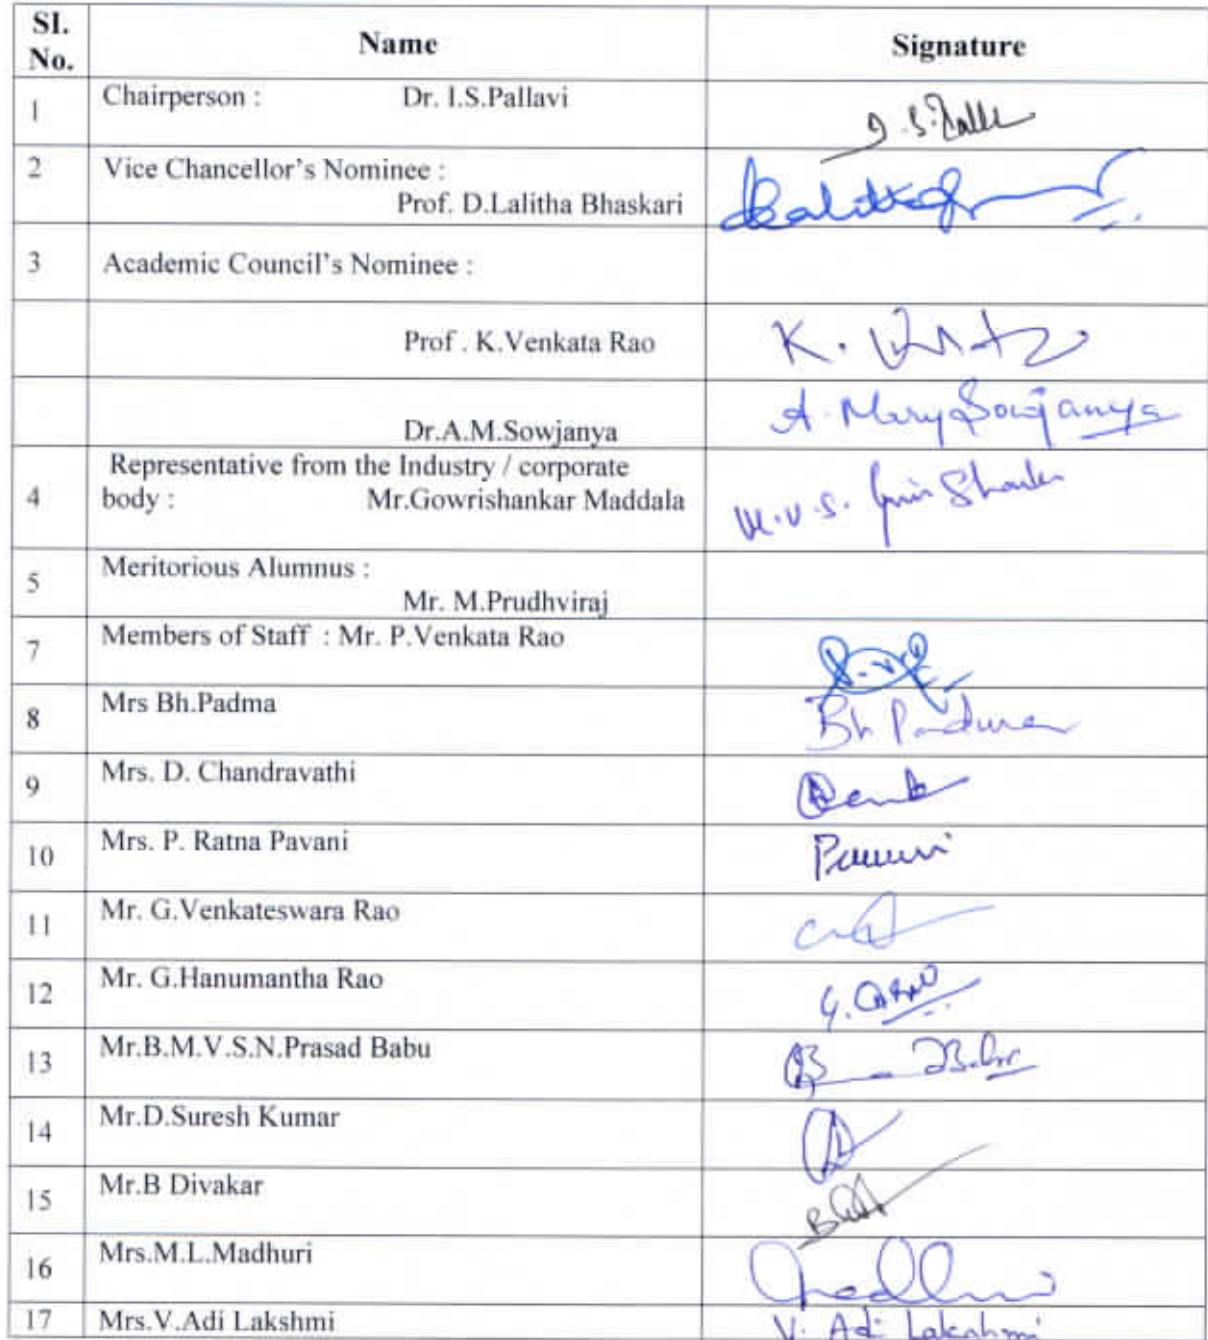 Sl.
No. Name Signature
1 Chairperson : Dr. I.S.Pallavi
2 Vice Chancellor's Nominee :
Prof. D.Lalitha Bhaskari
3 Academic Council's Nominee :
Prof . K.Venkata Rao K.
Dr.A.M.Sowjanya A. Mary Sowjanya
4 Representative from the Industry / corporate
body : Mr.Gowrishankar Maddala M.V.S.
5 Meritorious Alumnus :
Mr. M.Prudhviraj
7 Members of Staff : Mr. P.Venkata Rao
8 Mrs Bh.Padma Bh Padma
9 Mrs. D. Chandravathi
10 Mrs. P. Ratna Pavani
11 Mr. G.Venkateswara Rao
12 Mr. G.Hanumantha Rao
13 Mr.B.M.V.S.N.Prasad Babu
14 Mr.D.Suresh Kumar
15 Mr.B Divakar
16 Mrs.M.L.Madhuri
17 Mrs.V.Adi Lakshmi V. Adi Lakshmi